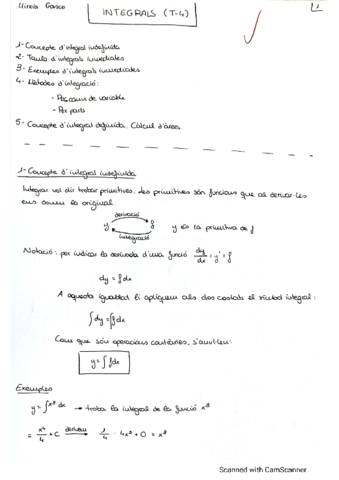 Mireia Gasco
INTEGRALS (T-4)
1
1- Concepte d'integral indefinida
2- Taula d'integrals immediates
3- Exemples d'integrals immediates
4- Mètodes d'integració:
- Per canvi de variable
- Per parts
5- Concepte d'integral definida. Càlcul d'àrees
1- Concepte d'integral indefinida
Integrar vol dir trobar primitives. Les primitives són funcions que al derivar-les
ens donen la original.
derivació
y f y és la primitiva de f
integració
Notació: per indicar la derivada d'una funció dy/dx = y' = f
dy = f dx
A aquesta igualtat li apliquem als dos costats el símbol integral:
∫dy = ∫f dx
Com que són operacions contràries, s'anul·len:
y = ∫ f dx
Exemples
y = ∫x³ dx → troba la integral de la funció x³
= x⁴/4 + C derivem → 1/4 · 4x³ + 0 = x³
Scanned with CamScanner